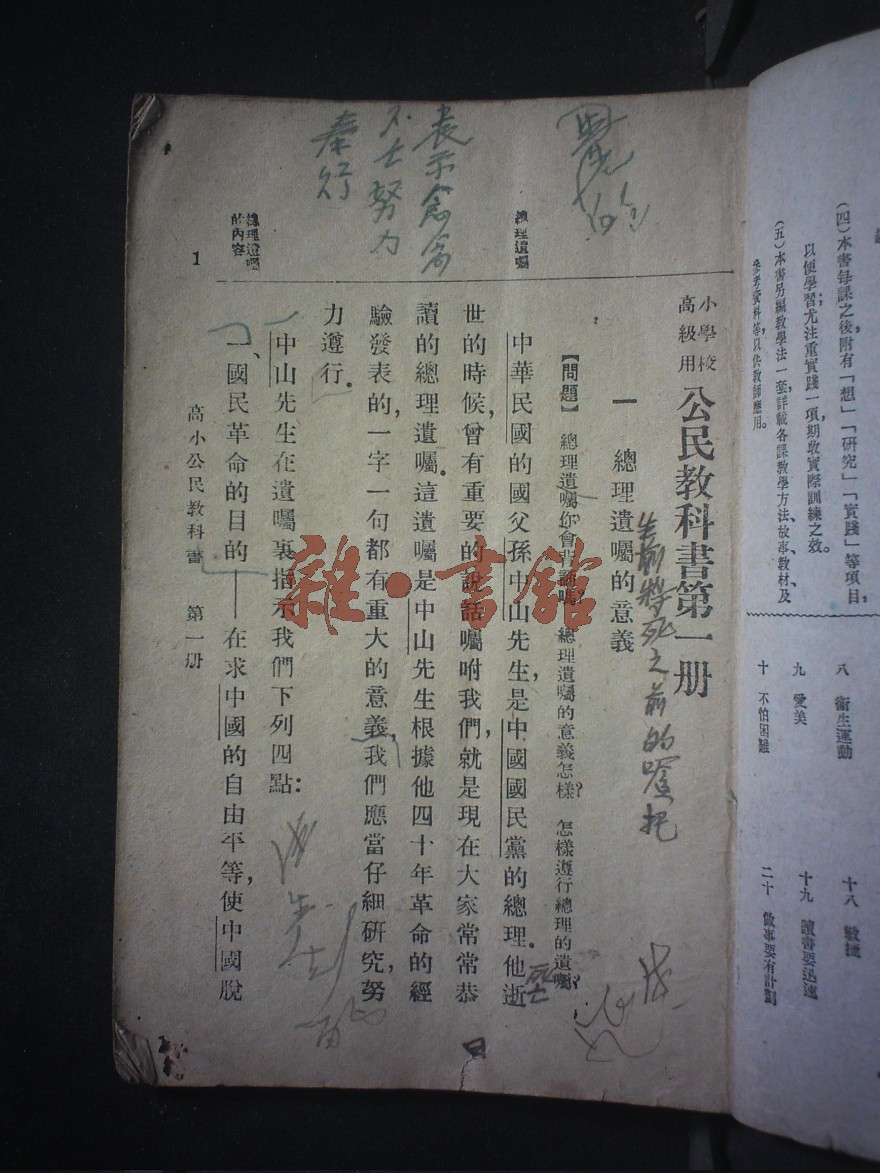 (四)本書每課之後,附有「想」「研究」「實踐」等項目,
以便學習;尤注重實踐一項,期收實際訓練之效。
(五)本書另編教學法一套,詳載各課教學方法、故事、教材、及
參考資料等,以供教師應用。
八 衛生運動
九 愛美
十 不怕困難
十八 敏捷
十九 讀書要迅速
二十 做事要有計劃
小學校高級用 公民教科書第一册
一 總理遺囑的意義
死之前的
【問題】 總理遺囑你會背誦嗎? 總理遺囑的意義怎樣? 怎樣遵行總理的遺囑?
總理遺囑
中華民國的國父孫中山先生,是中國國民黨的總理。他逝
死亡
世的時候,曾有重要的說話囑咐我們,就是現在大家常常恭
讀的總理遺囑。這遺囑是中山先生根據他四十年革命的經
驗發表的,一字一句都有重大的意義,我們應當仔細研究,努
力遵行。
努力
奉行
總理遺囑的內容
中山先生在遺囑裏指示我們下列四點:
一、國民革命的目的——在求中國的自由平等,使中國脫
高小公民教科書 第一册
1
雜·書館